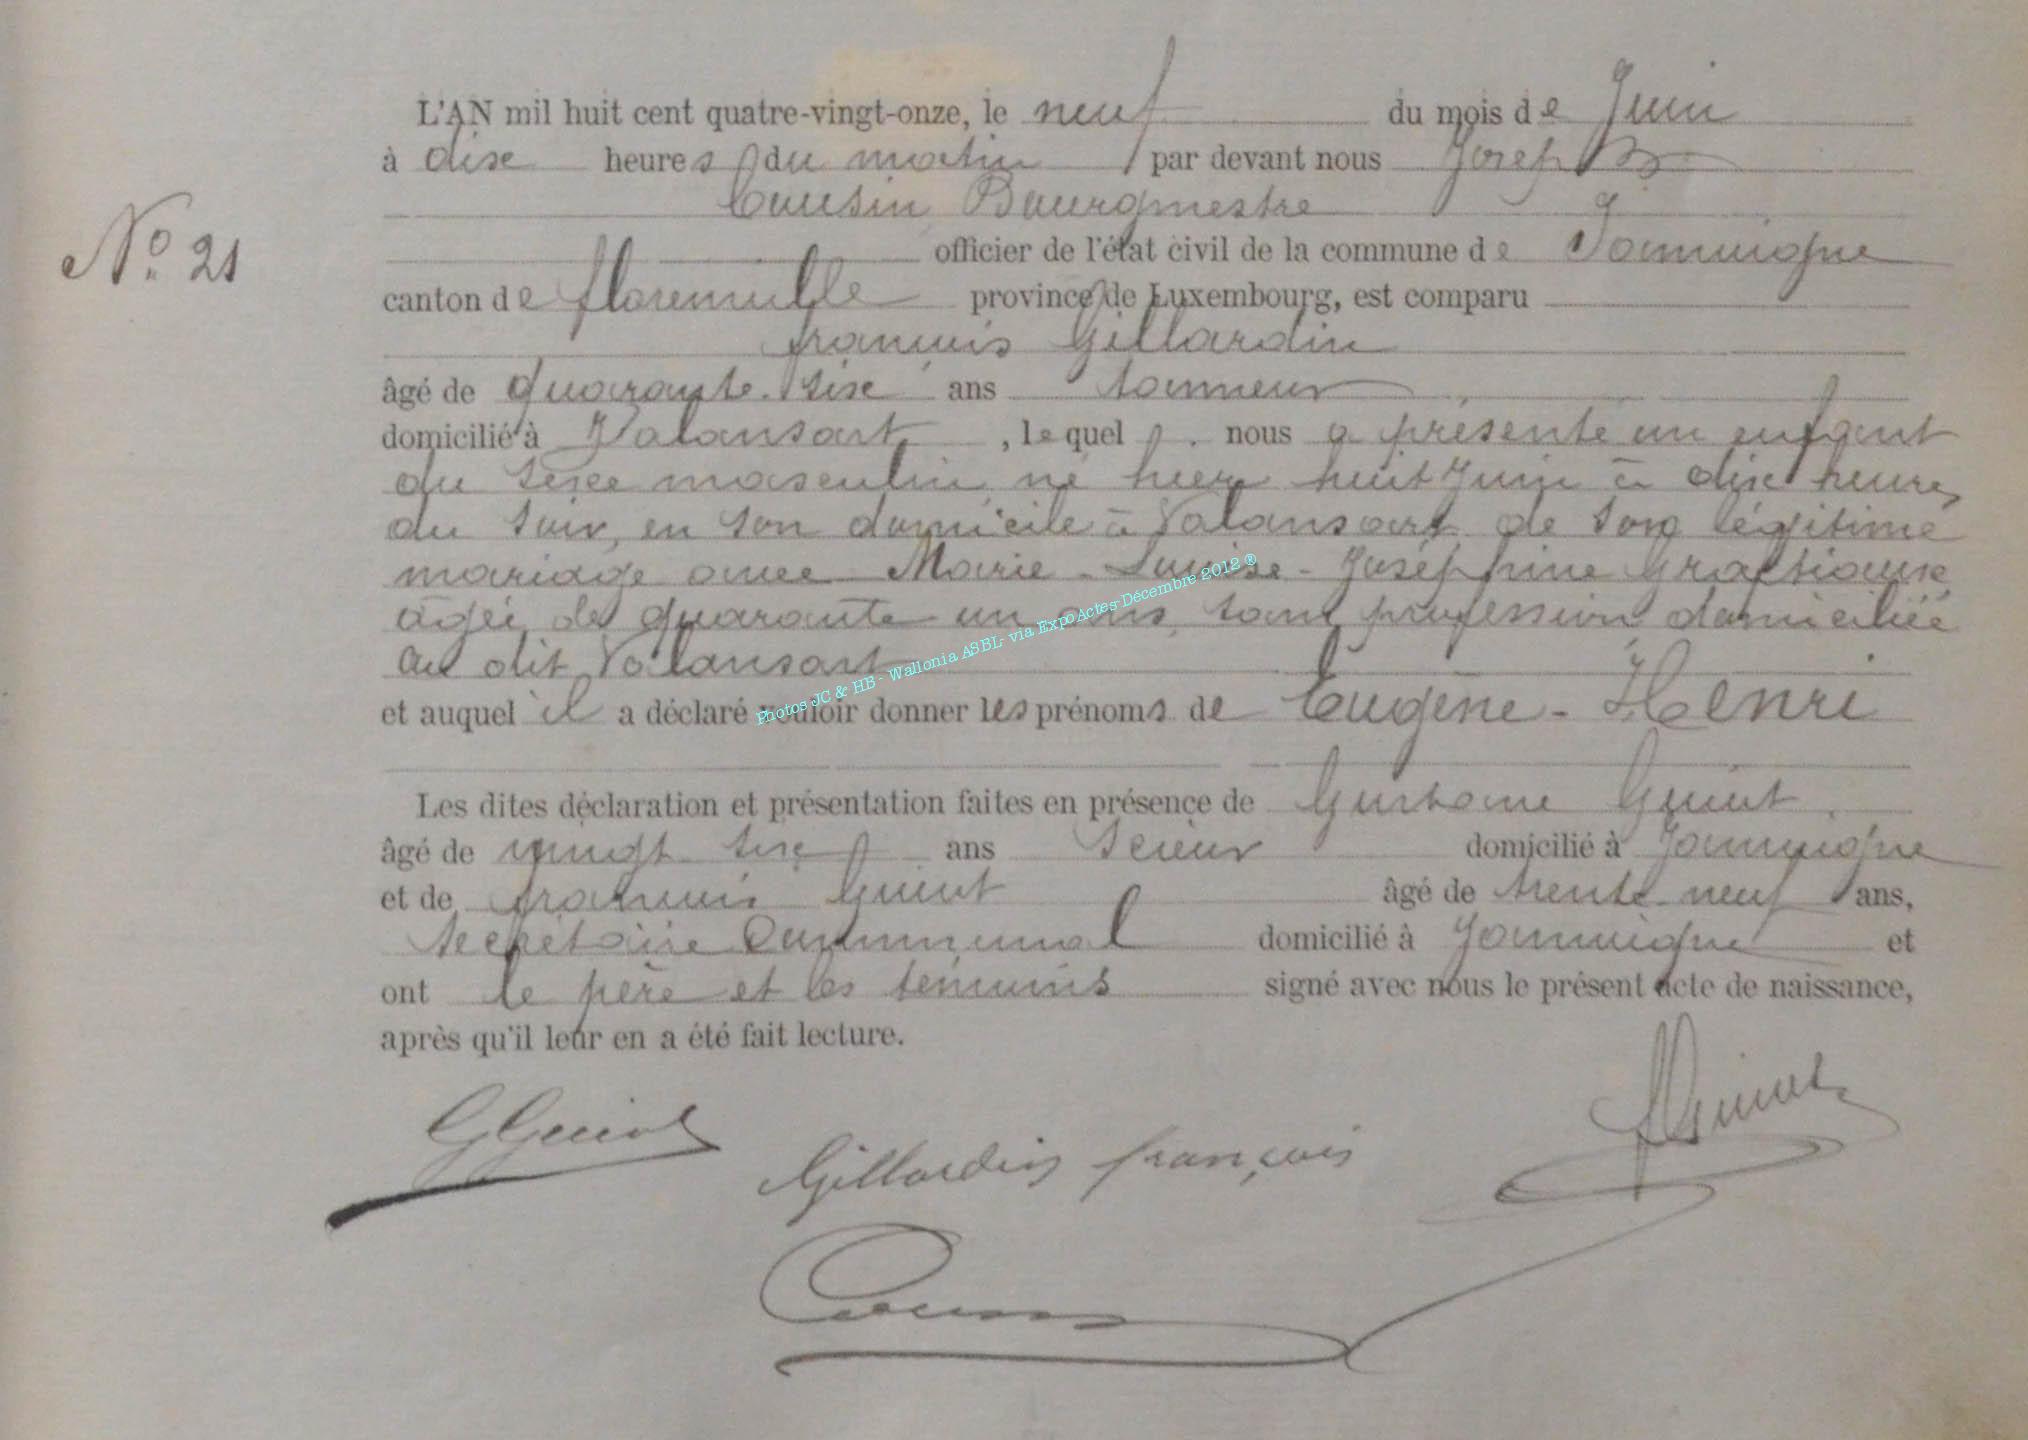 L'AN mil huit cent quatre-vingt-onze, le neuf du mois de Juin
à dix heures du matin par devant nous Joseph
Cousin Bourgmestre
N° 21
officier de l'état civil de la commune de Jamoigne
canton de florenville province de Luxembourg, est comparu
françois Gillardin
âgé de quarante-six ans tanneur
domicilié à Valansart, lequel nous a présenté un enfant
du sexe masculin, né hier huit Juin à dix heures
du soir, en son domicile à Valansart de son légitime
mariage avec Marie-Louise-Joséphine
âgée de quarante un ans, sans profession domiciliée
au dit Valansart
et auquel il a déclaré vouloir donner les prénoms de Eugène-Henri
Les dites déclaration et présentation faites en présence de Gustave Guiot
âgé de vingt six ans scieur domicilié à Jamoigne
et de françois Guiot âgé de trente-neuf ans,
secrétaire Communal domicilié à Jamoigne et
ont le père et les témoins signé avec nous le présent acte de naissance,
après qu'il leur en a été fait lecture.
GGuiot
Gillardin françois
Photos JC & HB - Wallonia ASBL- via ExpoActes-Décembre 2012 ®